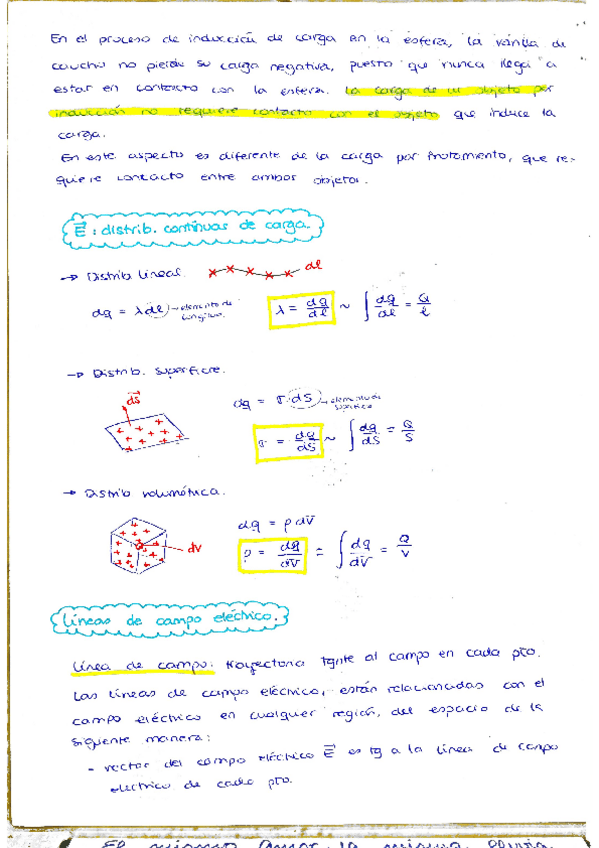 En el proceso de inducción de carga en la esfera, la varilla de
caucho no pierde su carga negativa, puesto que nunca llega a
estar en contacto con la esfera. La carga de un objeto por
inducción no requiere contacto con el objeto que induce la
carga.
En este aspecto es diferente de la carga por frotamiento, que re-
quiere contacto entre ambos objetos.
E⃗ : distrib. continuas de carga.
→ Distrib lineal. dl
dq = λ dl → elemento de
longitud
λ = dq/dl ~ ∫ dq/dl = Q/l
→ Distrib. superficie.
dS⃗
dq = σ·dS → elemento de
superficie
σ = dq/dS ~ ∫ dq/dS = Q/S
→ Distrib volumétrica.
dV
dq = ρ dV
ρ = dq/dV = ∫ dq/dV = Q/V
Líneas de campo eléctrico.
Línea de campo: trayectoria tgnte al campo en cada pto.
Las líneas de campo eléctrico, están relacionadas con el
campo eléctrico en cualquier región, del espacio de la
siguiente manera:
- vector del campo eléctrico E⃗ es tg a la línea de campo
electrico de cada pto.
El mismo amor, la misma lluvia